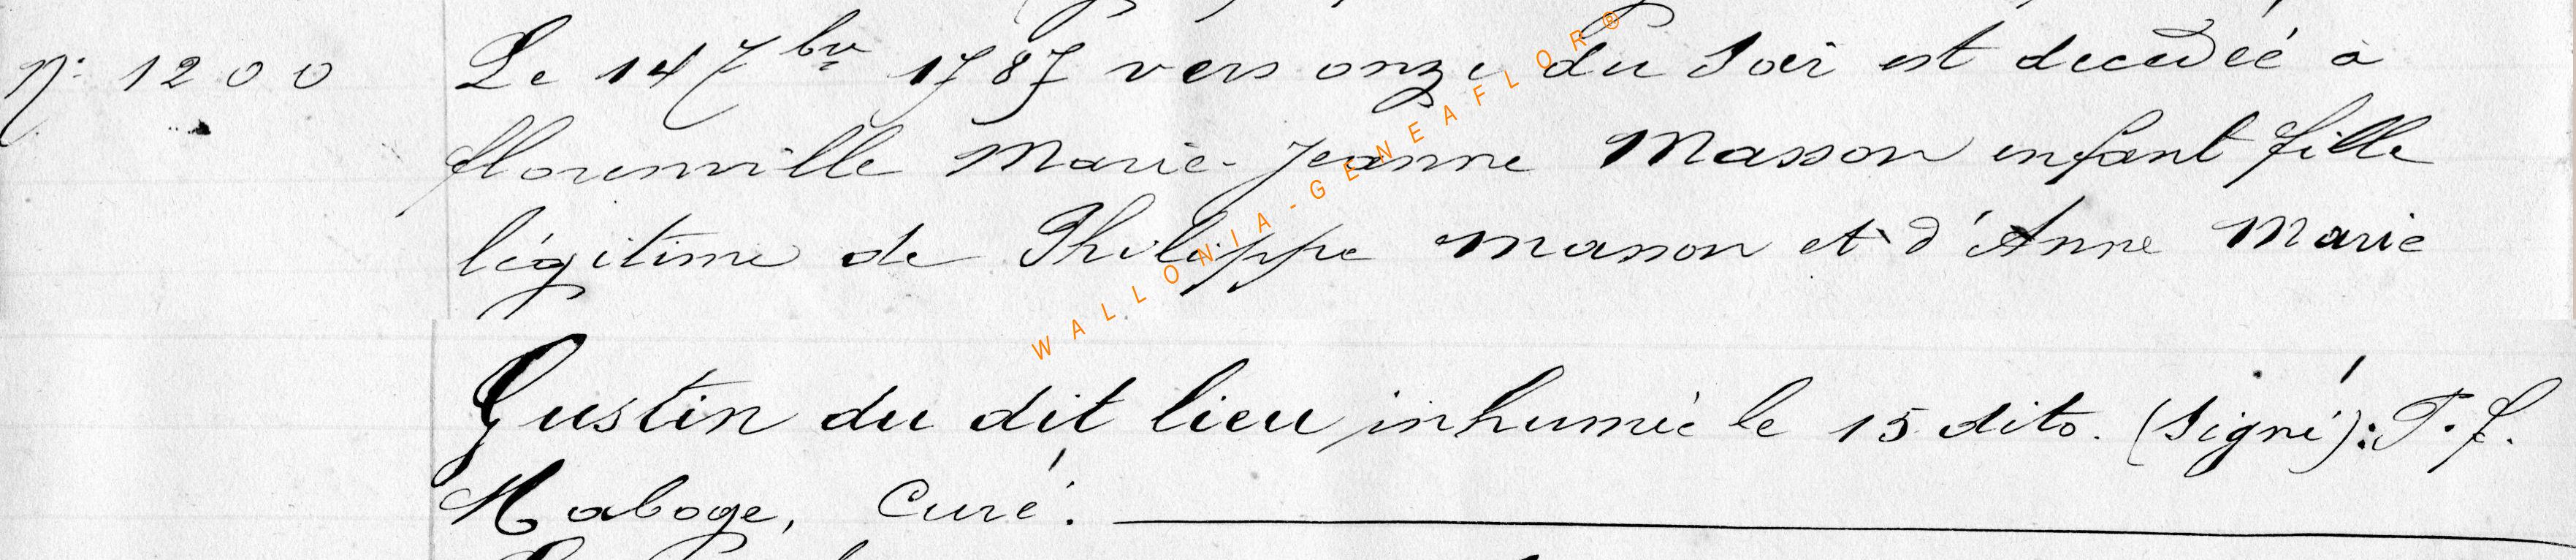 N° 1200
Le 14 7bre 1787 vers onze du soir est decedéé à
florenville Marie-Jeanne Masson enfant fille
légitime de Philippe Masson et d'Anne Marie
Gustin du dit lieu inhumée le 15 dito. (Signé): T. f.
Haboge, Curé.
WALLONIA-GENEAFLOR®